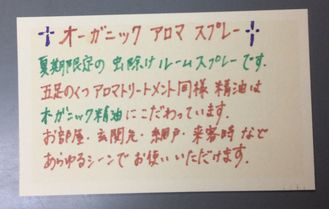 オーガニック アロマ スプレー
夏期限定の 虫除けルームスプレーです.
五足のくつ アロマトリートメント同様 精油は
オーガニック精油にこだわっています.
お部屋・玄関先・網戸・来客時 など
あらゆるシーンでお使いいただけます.